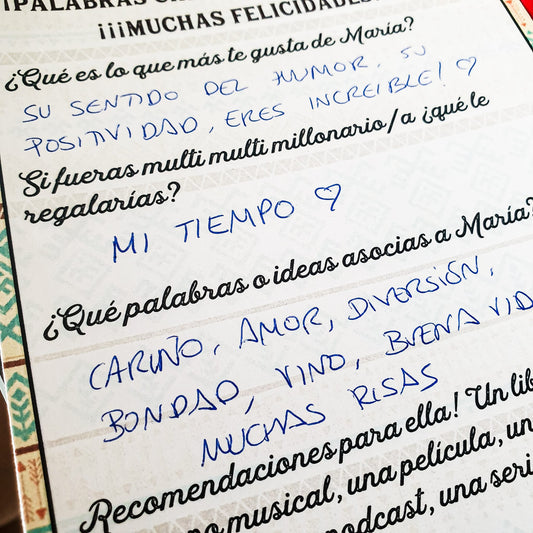 ¡PALABRAS
¡¡¡MUCHAS FELICIDADES
¿Qué es lo que más te gusta de María?
SU SENTIDO DEL HUMOR, SU
POSITIVIDAD, ERES INCREIBLE! ♡
Si fueras multi multi millonario/a ¿qué le
regalarías?
MI TIEMPO ♡
¿Qué palabras o ideas asocias a María?
CARIÑO, AMOR, DIVERSIÓN,
BONDAD, VINO, BUENA VID
MUCHAS RISAS
Recomendaciones para ella! Un lib
musical, una película, un
podcast, una seri